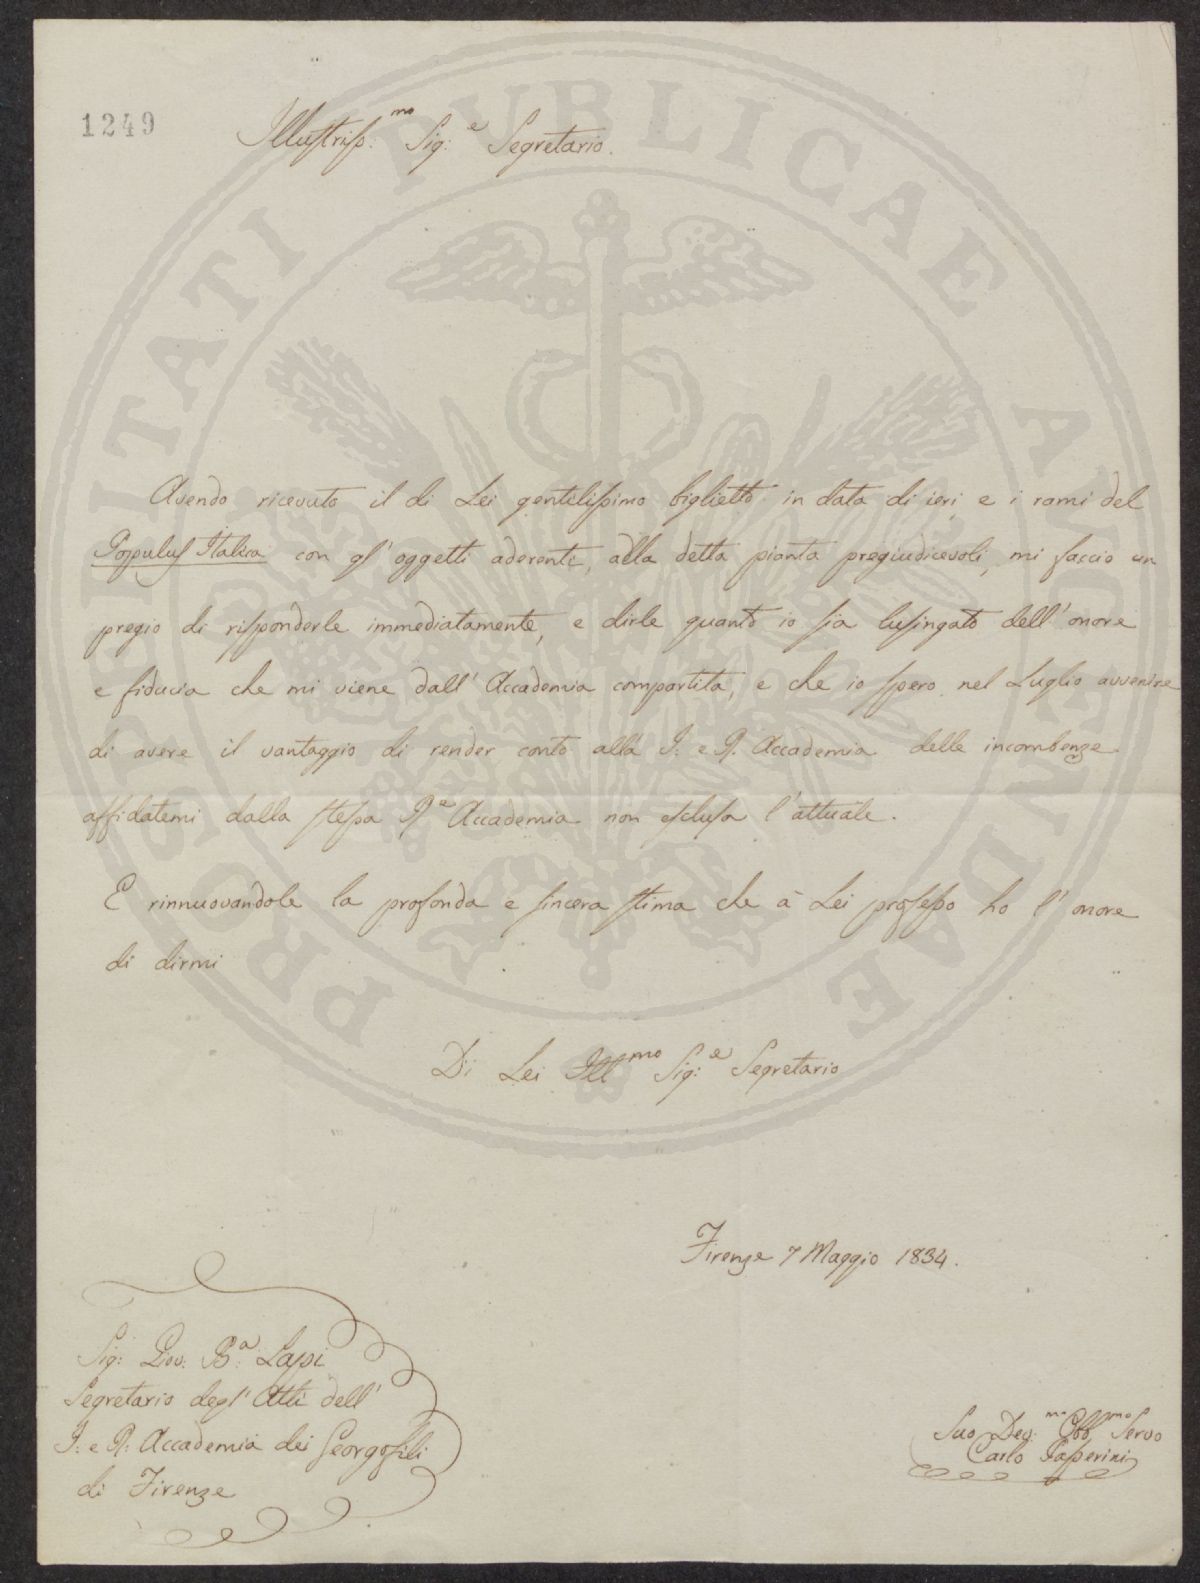 1249
Illustriss:mo Sig:e Segretario.
PROSPERITATI PUBLICAE AUGENDAE
Avendo ricevuto il di Lei gentilissimo biglietto in data di ieri e i rami del
Populus Italica con gl' oggetti aderenti, alla detta pianta pregiudicevoli, mi faccio un
pregio di risponderle immediatamente, e dirle quanto io sia lusingato dell' onore
e fiducia che mi viene dall' Accademia compartita, e che io spero nel Luglio avvenire
di avere il vantaggio di render conto alla I: e R. Accademia delle incombenze
affidatemi dalla stessa Ra Accademia non esclusa l'attuale.
E rinnuovandole la profonda e sincera stima che à Lei professo ho l' onore
di dirmi
Di Lei Illmo Sig:e Segretario
Firenze 7 Maggio 1834.
Sig: Gov: Ba: Lapi
Segretario degl' Atti dell'
I: e R: Accademia dei Georgofili
di Firenze
Suo Dev:mo Obbmo Servo
Carlo Passerini